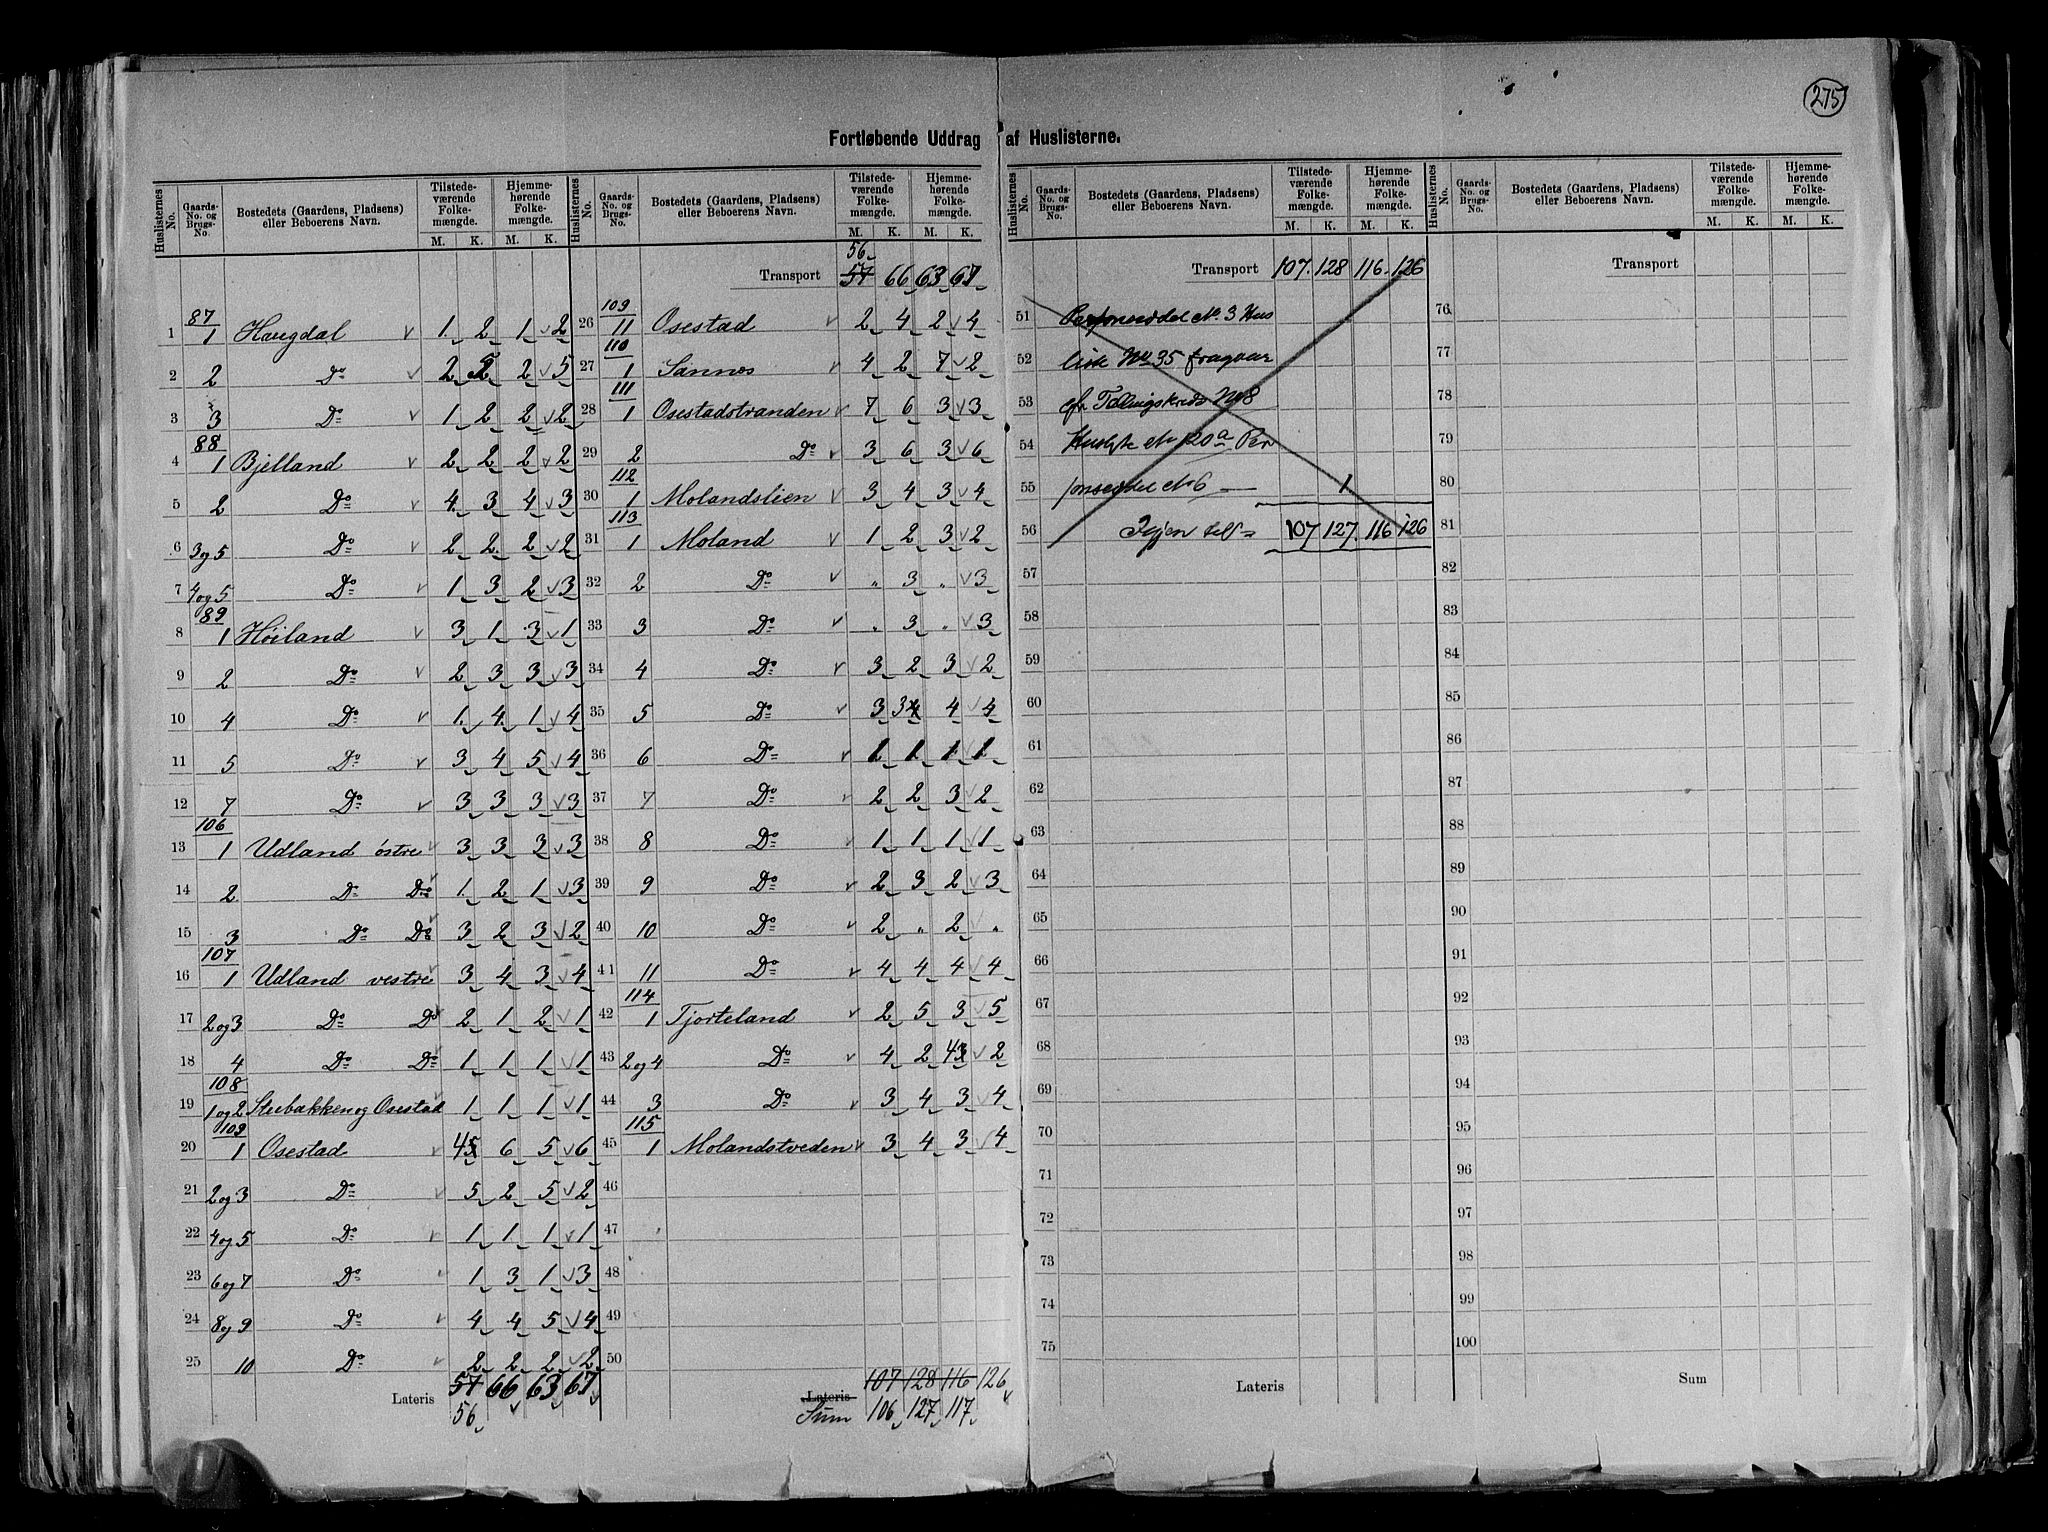 275
Fortløbende Uddrag af Huslisterne.
Huslisternes No. | Gaards-No. og Brugs-No. | Bostedets (Gaardens, Pladsens) eller Beboerens Navn. | Tilstedeværende Folkemængde. M. K. | Hjemmehørende Folkemængde. M. K.
1 | 87 / 1 | Haugdal | 1 | 2 | 1 | 2
2 | 2 | Do | 2 | 5 | 2 | 5
3 | 3 | Do | 1 | 2 | 2 | 2
4 | 88 / 1 | Bjelland | 2 | 2 | 2 | 2
5 | 2 | Do | 4 | 3 | 4 | 3
6 | 3 og 5 | Do | 2 | 2 | 2 | 2
7 | 4 og 5 | Do | 1 | 3 | 2 | 3
8 | 89 / 1 | Høiland | 3 | 1 | 3 | 1
9 | 2 | Do | 2 | 3 | 3 | 3
10 | 4 | Do | 1 | 4 | 1 | 4
11 | 5 | Do | 3 | 4 | 5 | 4
12 | 7 | Do | 3 | 3 | 3 | 3
13 | 106 / 1 | Udland østre | 3 | 3 | 3 | 3
14 | 2 | Do Do | 1 | 2 | 1 | 3
15 | 3 | Do Do | 3 | 2 | 3 | 2
16 | 107 / 1 | Udland vestre | 3 | 4 | 3 | 4
17 | 2 og 3 | Do Do | 2 | 1 | 2 | 1
18 | 4 | Do Do | 1 | 1 | 1 | 1
19 | 108 / 1 og 2 | Stubakken og Osestad | 1 | 1 | 1 | 1
20 | 109 / 1 | Osestad | 4 5 | 6 | 5 | 6
21 | 2 og 3 | Do | 5 | 2 | 5 | 2
22 | 4 og 5 | Do | 1 | 1 | 1 | 1
23 | 6 og 7 | Do | 1 | 3 | 1 | 3
24 | 8 og 9 | Do | 4 | 4 | 5 | 4
25 | 10 | Do | 2 | 2 | 2 | 2
Lateris 57 66 63 67
56
Huslisternes No. | Gaards-No. og Brugs-No. | Bostedets (Gaardens, Pladsens) eller Beboerens Navn. | Tilstedeværende Folkemængde. M. K. | Hjemmehørende Folkemængde. M. K.
56
Transport 57 66 63 67
26 | 109 / 11 | Osestad | 2 | 4 | 2 | 4
27 | 110 / 1 | Sannes | 4 | 2 | 7 | 2
28 | 111 / 1 | Osestadstranden | 7 | 6 | 3 | 3
29 | 2 | Do | 3 | 6 | 3 | 6
30 | 112 / 1 | Molandslien | 3 | 4 | 3 | 4
31 | 113 / 1 | Moland | 1 | 2 | 3 | 2
32 | 2 | Do | " | 3 | " | 3
33 | 3 | Do | " | 3 | " | 3
34 | 4 | Do | 3 | 2 | 3 | 2
35 | 5 | Do | 3 | 3 4 | 4 | 4
36 | 6 | Do | 1 | 1 | 1 | 1
37 | 7 | Do | 2 | 2 | 3 | 2
38 | 8 | Do | 1 | 1 | 1 | 1
39 | 9 | Do | 2 | 3 | 2 | 3
40 | 10 | Do | 2 | " | 2 | "
41 | 11 | Do | 4 | 4 | 4 | 4
42 | 114 / 1 | Tjorteland | 2 | 5 | 3 | 5
43 | 2 og 4 | Do | 4 | 2 | 4 3 | 2
44 | 3 | Do | 3 | 4 | 3 | 4
45 | 115 / 1 | Molandstveden | 3 | 4 | 3 | 4
46
47
48
49
50
Lateris 107 128 116 126
Sum 106 127 117
Huslisternes No. | Gaards-No. og Brugs-No. | Bostedets (Gaardens, Pladsens) eller Beboerens Navn. | Tilstedeværende Folkemængde. M. K. | Hjemmehørende Folkemængde. M. K.
Transport 107 128 116 126
51 Personseddel No. 3 Hus
52 liste No 35 fragaar
53 cfr Tællingskreds No 8
54 Husliste No 20a Per
55 sonseddel No 6 1
56 Igjen 107 127 116 126
57
58
59
60
61
62
63
64
65
66
67
68
69
70
71
72
73
74
75
Lateris
Huslisternes No. | Gaards-No. og Brugs-No. | Bostedets (Gaardens, Pladsens) eller Beboerens Navn. | Tilstedeværende Folkemængde. M. K. | Hjemmehørende Folkemængde. M. K.
Transport
76
77
78
79
80
81
82
83
84
85
86
87
88
89
90
91
92
93
94
95
96
97
98
99
100
Sum